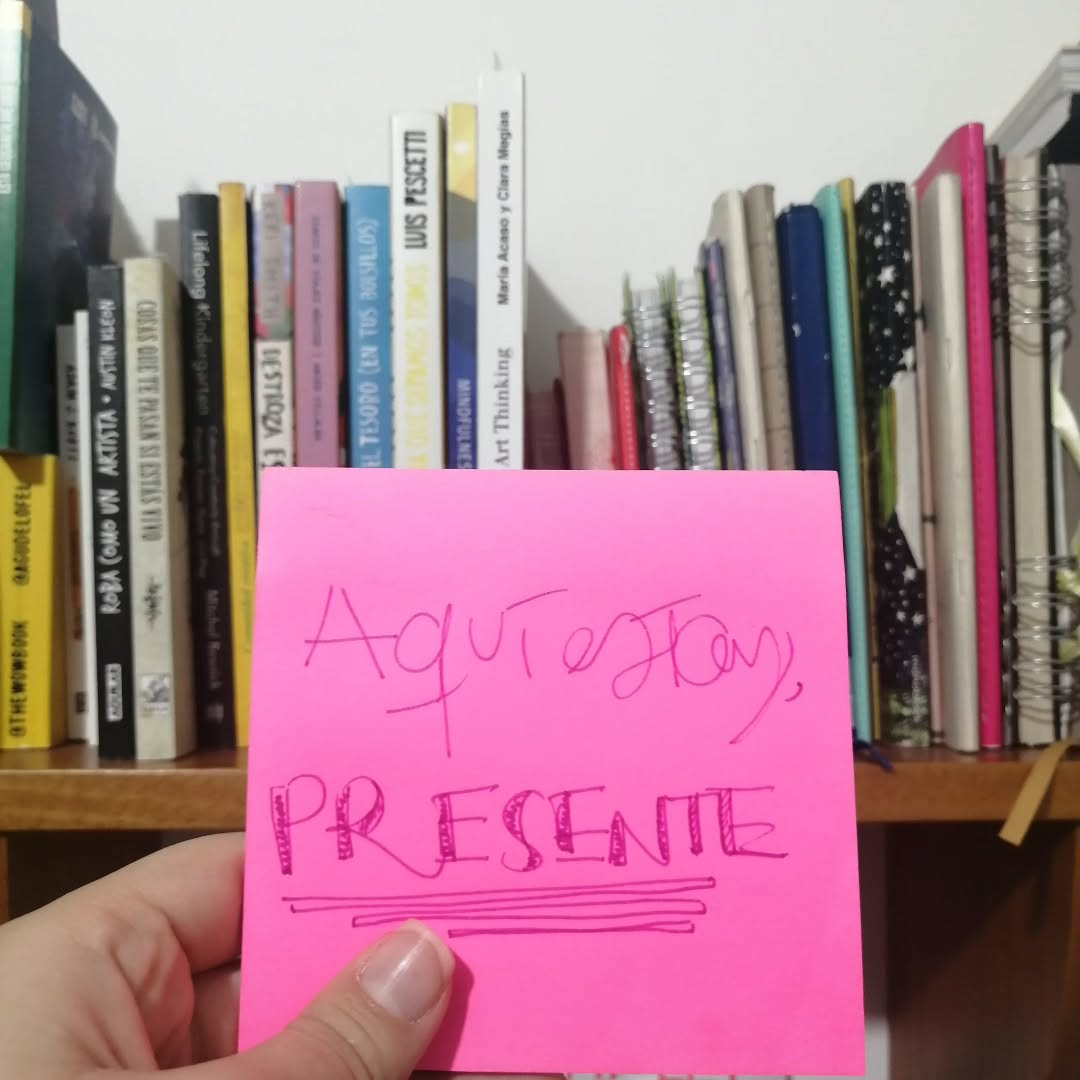 @THEWOWBOOK @AGUDELOFEL
ROBA COMO UN ARTISTA • AUSTIN KLEON
AGUILAR
COSAS QUE TE PASAN SI ESTÁS VIVO
Lifelong Kindergarten
DESTROZA ES
EL TESORO (EN TUS BOLSILLOS)
LUIS PESCETTI
MINDFULNES
Art Thinking María Acaso y Clara Megías
Aquí estoy,
PRESENTE